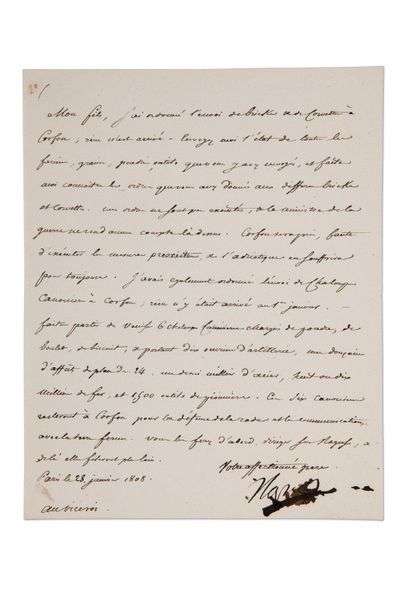 Mon fils, j'ai ordonné l'envoi de bricks et de Corvettes à
Corfou; rien n'est arrivé. Envoyez moi l'état de toute la
farine, grain, poudre, outils que vous y avez envoyés, et faites
moi connaître les ordres que vous avez donnés aux différens bricks
et Corvettes. mes ordres ne sont pas exécutés, et le ministre de la
guerre ne rend aucun compte là dessus. Corfou sera pris, faute
d'exécuter les mesures prescrites, et l'adriatique en souffrira
pour toujours. J'avais également ordonné l'envoi de Chaloupes
Canonières à Corfou; rien n'y était arrivé au 1er janvier. —
faites partir de Venise 6 chaloupes Canonières chargées de poudre, de
boulets, de biscuit, et portant des ouvriers d'artillerie, une douzaine
d'affuts de place de 24. un demi millier d'acier, huit ou dix
milliers de fer, et 1500 outils de pionniers. Ces Six canonières
resteront à Corfou pour la défense de la rade et la communication
avec la terre ferme. vous les ferez d'abord diriger sur Raguse, et
de là elles fileront plus loin.
Votre affectionné père
Paris le 28 janvier 1808.
Nap
au viceroi